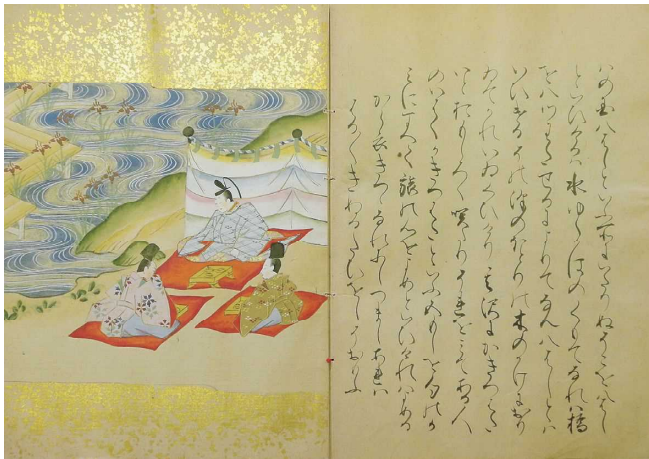 はの国八はしといふ所にいたりぬそこを八はし
といひけるは水ゆくかはのくもてなれは橋
を八つわたせるによりてなん八はしとは
いひけるそのさはのほとりの木のかけにおり
ゐてかれいゐくひけりその沢にかきつはた
いとおもしろく咲たりそれをみてある人
のいはくかきつはたといふ五もしを句のか
みにすへて旅の心をよめといひけれはよめる
から衣きつゝなれにしつましあれは
はる〱きぬるたひをしそおもふ